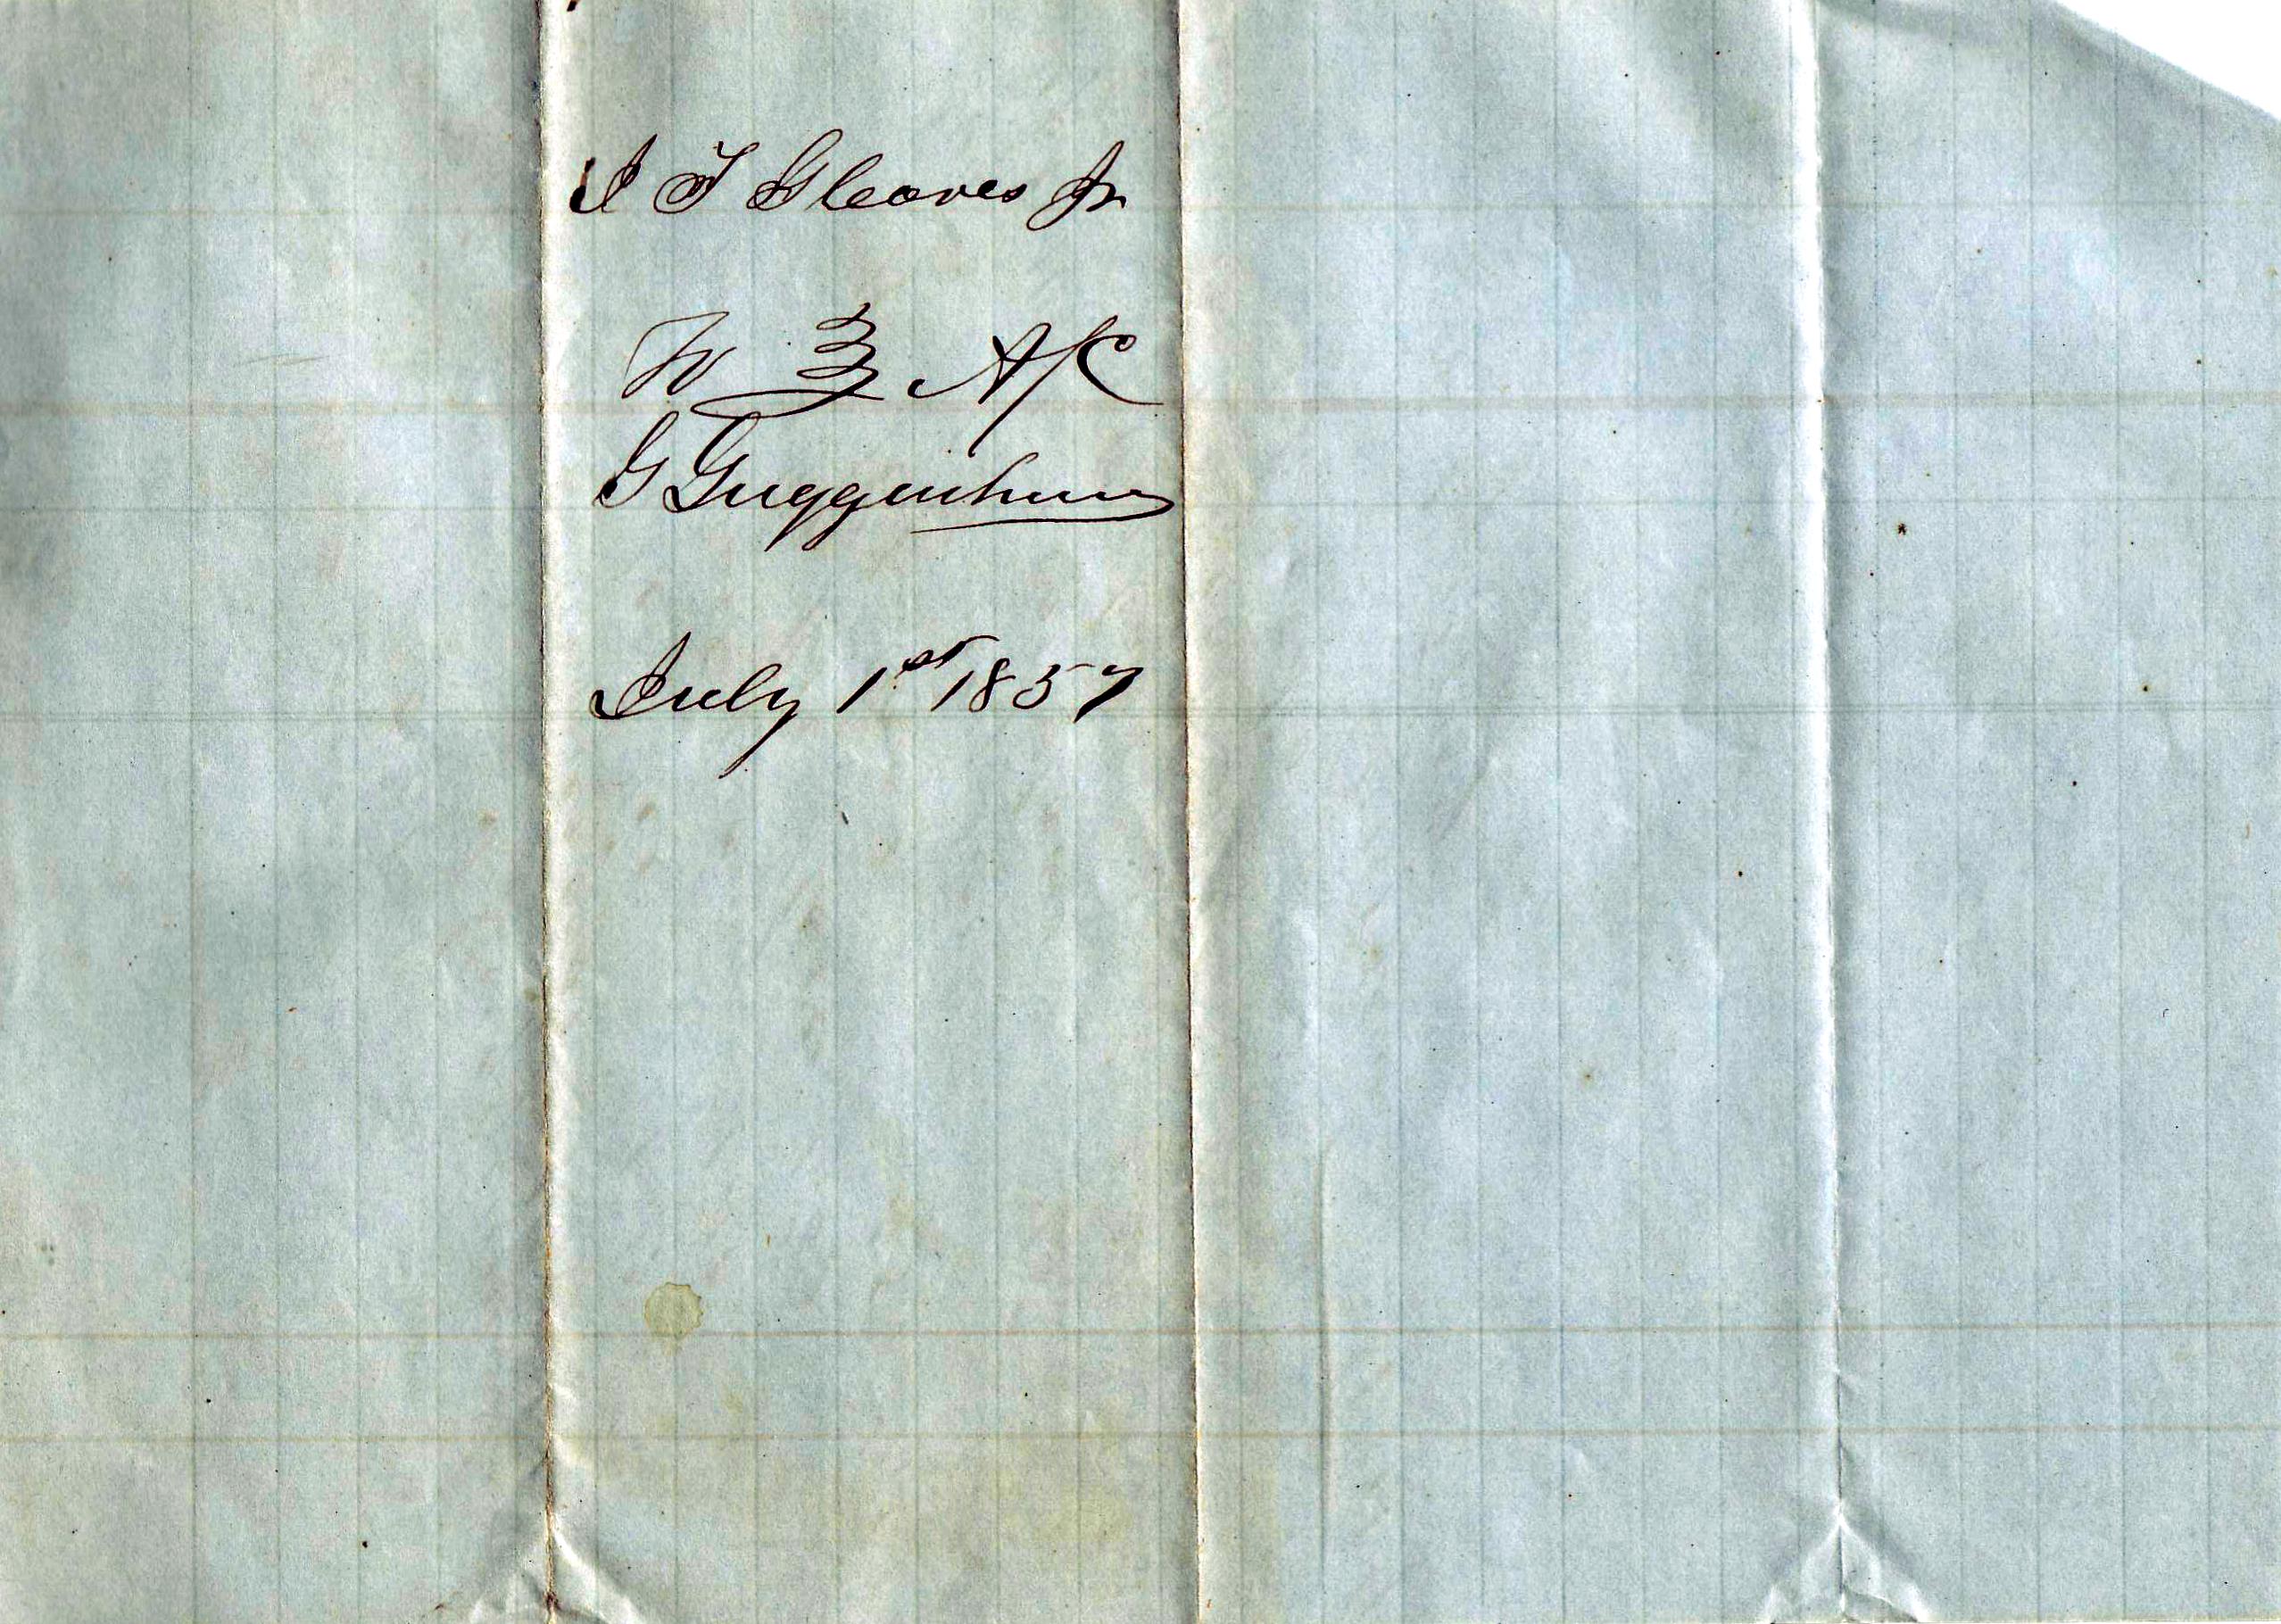 J T Gleaves Jr
A/C
G Guggenhime
July 1st 1857